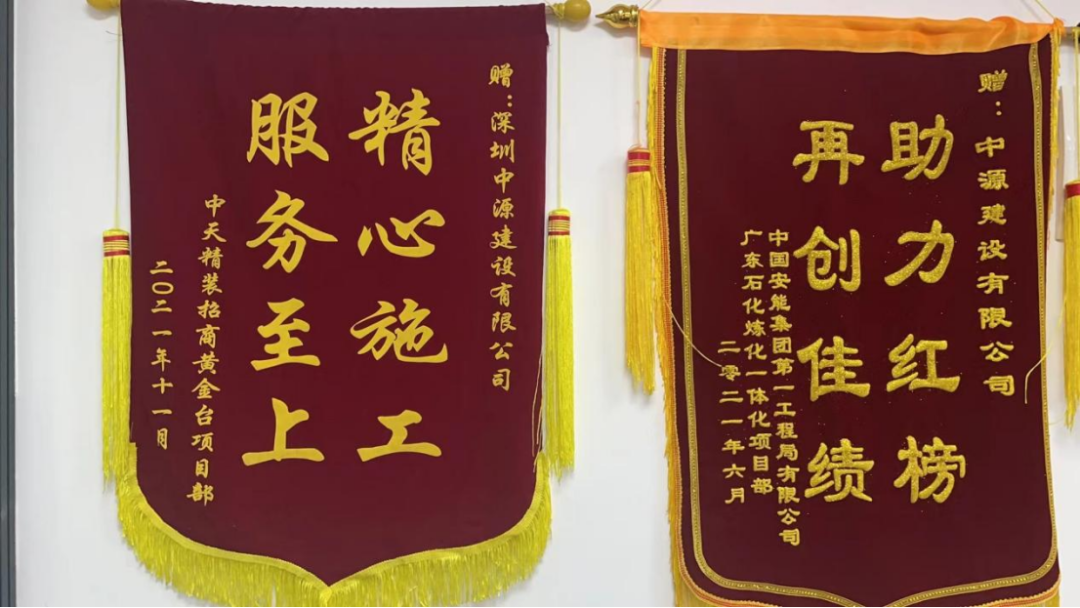 赠:深圳中源建设有限公司
精心施工
服务至上
中天精装招商黄金台项目部
二〇二一年十一月
赠:中源建设有限公司
助力红榜
再创佳绩
中国安能集团第一工程局有限公司
广东石化炼化一体化项目部
二零二一年六月